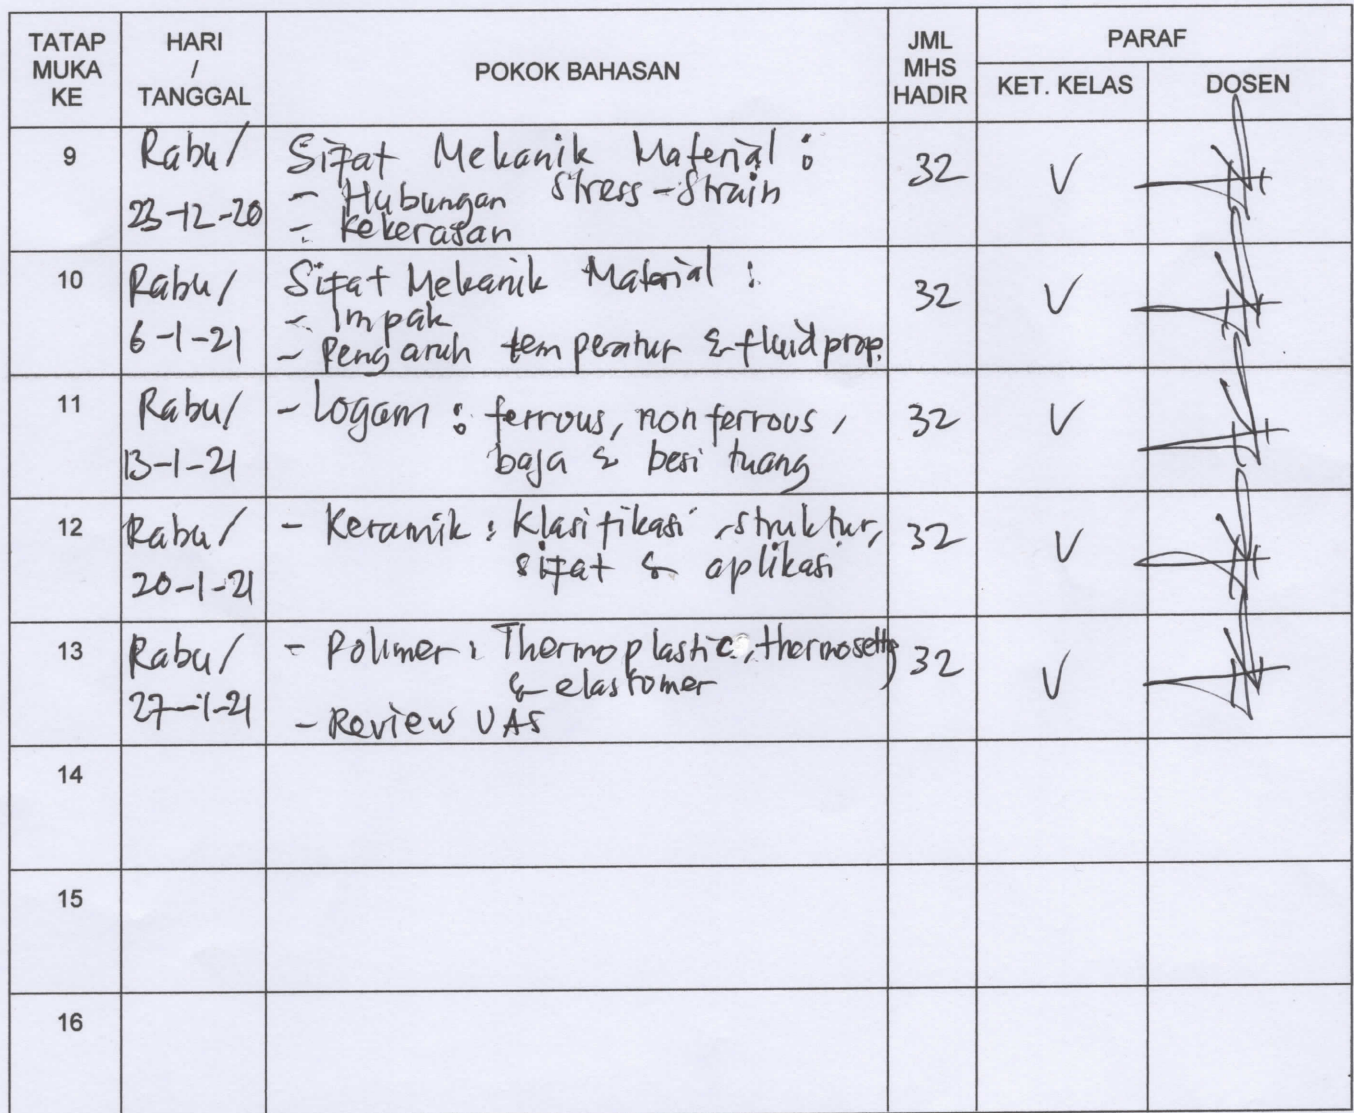 TATAP MUKA KE
HARI / TANGGAL
POKOK BAHASAN
JML MHS HADIR
PARAF
KET. KELAS
DOSEN
9
Rabu/
23-12-20
Sifat Mekanik Material :
- Hubungan stress-strain
- Kekerasan
32
V
10
Rabu/
6-1-21
Sifat Mekanik Material :
- Impak
- Pengaruh temperatur & fluid prop.
32
V
11
Rabu/
13-1-21
- Logam : ferrous, non ferrous,
baja & besi tuang
32
V
12
Rabu/
20-1-21
- Keramik : Klasifikasi, struktur,
sifat & aplikasi
32
V
13
Rabu/
27-1-21
- Polimer : Thermoplastic, thermosetting
& elastomer
- Review UAS
32
V
14
15
16